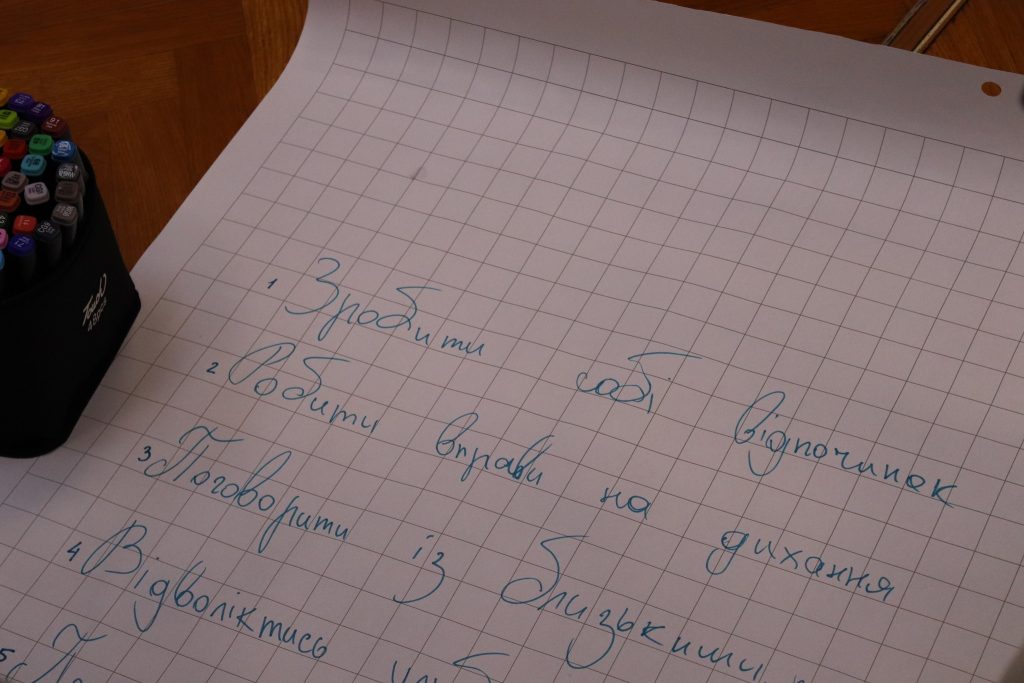 1 Зробити собі відпочинок
2 Робити вправи на дихання
3 Поговорити із близькими
4 Відволіктись
5
Touch
48pcs